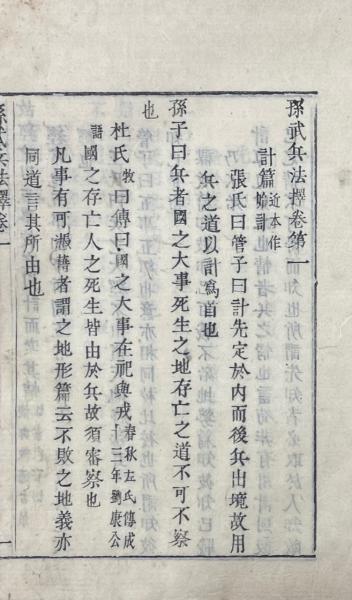 孫武兵法擇卷第一
計篇 近本作始計
張氏曰管子曰計先定於內而後兵出境故用
兵之道以計爲首也
孫子曰兵者國之大事死生之地存亡之道不可不察
也
杜氏牧曰傳曰國之大事在祀與戎 春秋左氏傳成十三年劉康公
語 國之存亡人之死生皆由於兵故須審察也
凡事有可憑藉者謂之地形篇云不敗之地義亦
同道言其所由也
孫武兵法擇卷一